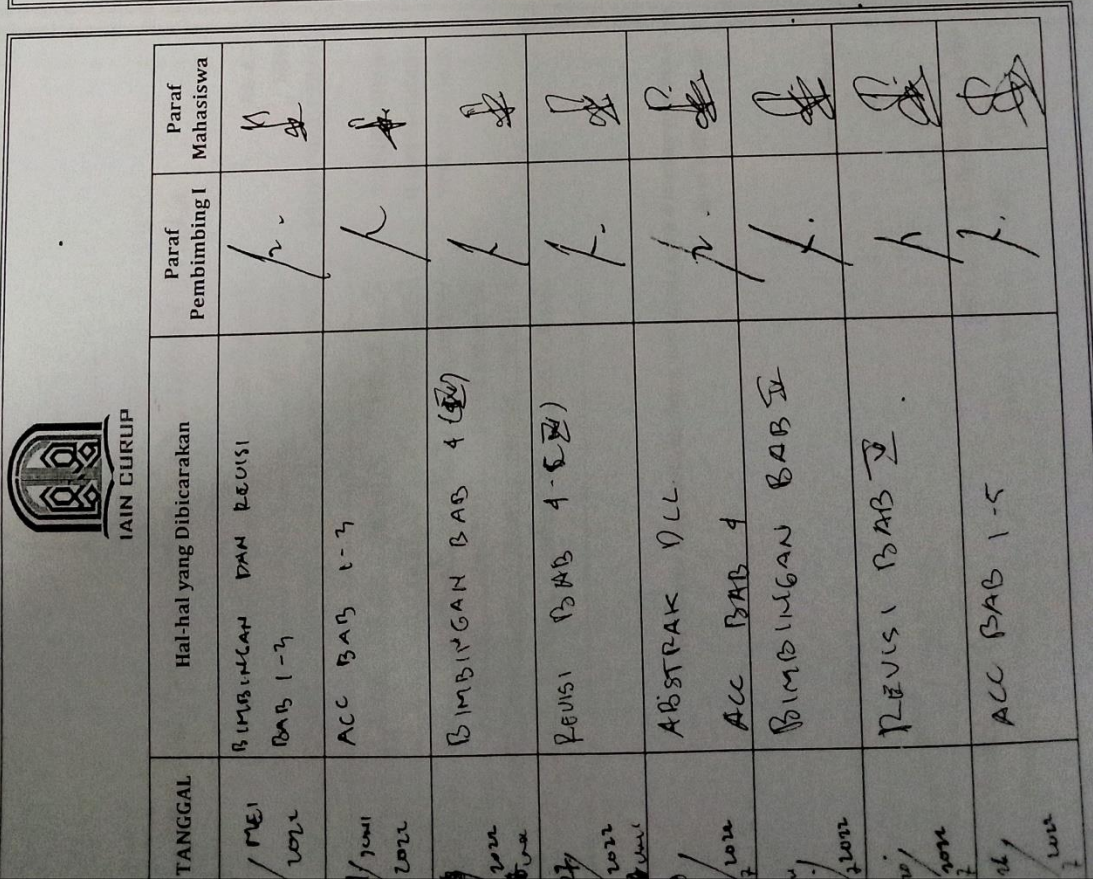 IAIN CURUP
TANGGAL
Hal-hal yang Dibicarakan
Paraf
Pembimbing I
Paraf
Mahasiswa
/ MEI
2022
BIMBINGAN DAN REVISI
BAB 1-3
/ JUNI
2022
ACC BAB 1-3
2022
BIMBINGAN BAB 4
2022
REVISI BAB 4-5
/2022
7
ABSTRAK DLL
ACC BAB 4
/2022
7
BIMBINGAN BAB IV
20/
2022
7
REVISI BAB V
26/
2022
7
ACC BAB 1-5